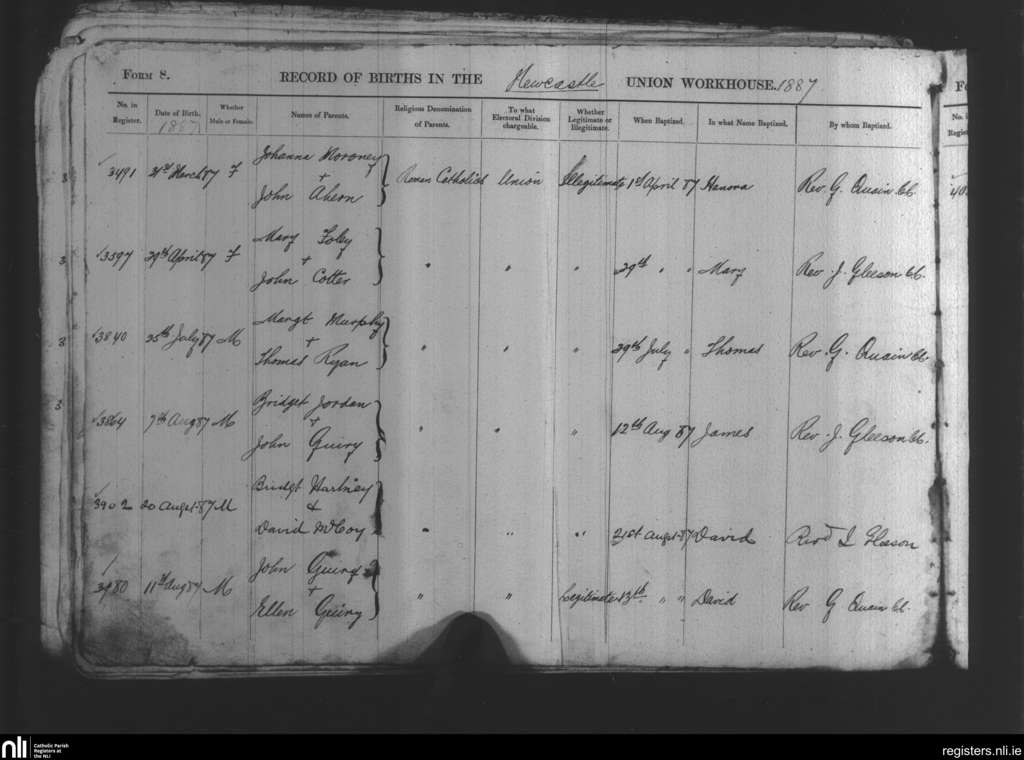 FORM 8. RECORD OF BIRTHS IN THE Newcastle UNION WORKHOUSE. 1887
No. in Register. Date of Birth. 1887 Whether Male or Female. Names of Parents. Religious Denomination of Parents. To what Electoral Division chargeable. Whether Legitimate or Illegitimate. When Baptized. In what Name Baptized. By whom Baptized.
Johanna Moroney
3491 21st March 87 F + Roman Catholick Union Illegitimate 1st April 87 Hanora Rev. G. Quain CC.
John Ahern
Mary Foley
3597 29th April 87 F + " " " 29th " " Mary Rev. J. Gleeson CC.
John Cotter
Margt Murphy
3840 25th July 87 M + " " " 29th July " Thomas Rev. G. Quain CC.
Thomas Ryan
Bridget Jordan
3864 7th Aug 87 M + " " " 12th Aug 87 James Rev. J. Gleeson CC.
John Guiry
Bridgt Hartney
3902 20 Augst 87 M & " " " 21st Augst 87 David Revd Gleeson
David McCoy
John Guiry
11th Aug 87 M + " " Legitimate 13th " " David Rev G Quain CC.
Ellen Guiry
nli Catholic Parish
Registers at
the NLI
registers.nli.ie